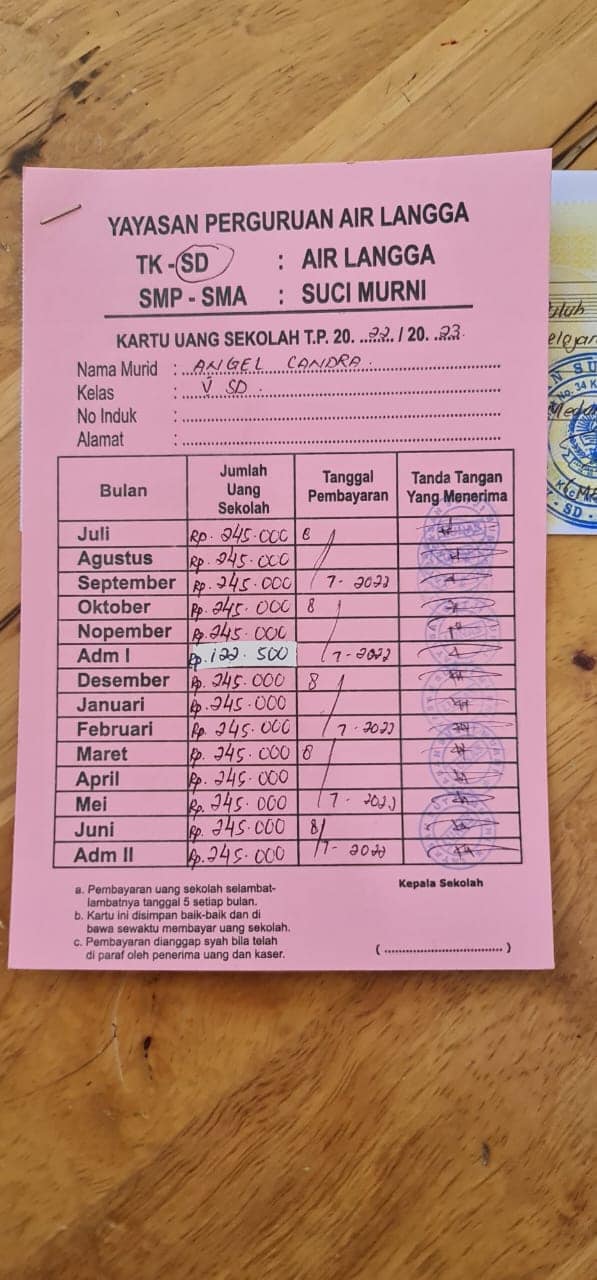 YAYASAN PERGURUAN AIR LANGGA
TK - SD : AIR LANGGA
SMP - SMA : SUCI MURNI
KARTU UANG SEKOLAH T.P. 20. 22. / 20. 23.
Nama Murid : ANGEL CANDRA.
Kelas : V SD.
No Induk :
Alamat :
Bulan Jumlah Uang Sekolah Tanggal Pembayaran Tanda Tangan Yang Menerima
Juli Rp. 245.000 8
Agustus Rp. 245.000
September Rp. 245.000 / 7 - 2022
Oktober Rp. 245.000 8
Nopember Rp. 245.000
Adm I Rp. 122.500 / 7 - 2022
Desember Rp. 245.000 8
Januari Rp. 245.000
Februari Rp. 245.000 / 7 - 2022
Maret Rp. 245.000 8
April Rp. 245.000
Mei Rp. 245.000 / 7 - 2022
Juni Rp. 245.000 8/
Adm II Rp. 245.000 /7 - 2022
a. Pembayaran uang sekolah selambat-
lambatnya tanggal 5 setiap bulan.
b. Kartu ini disimpan baik-baik dan di
bawa sewaktu membayar uang sekolah.
c. Pembayaran dianggap syah bila telah
di paraf oleh penerima uang dan kaser.
Kepala Sekolah
(....................................)
No. 34
Medan